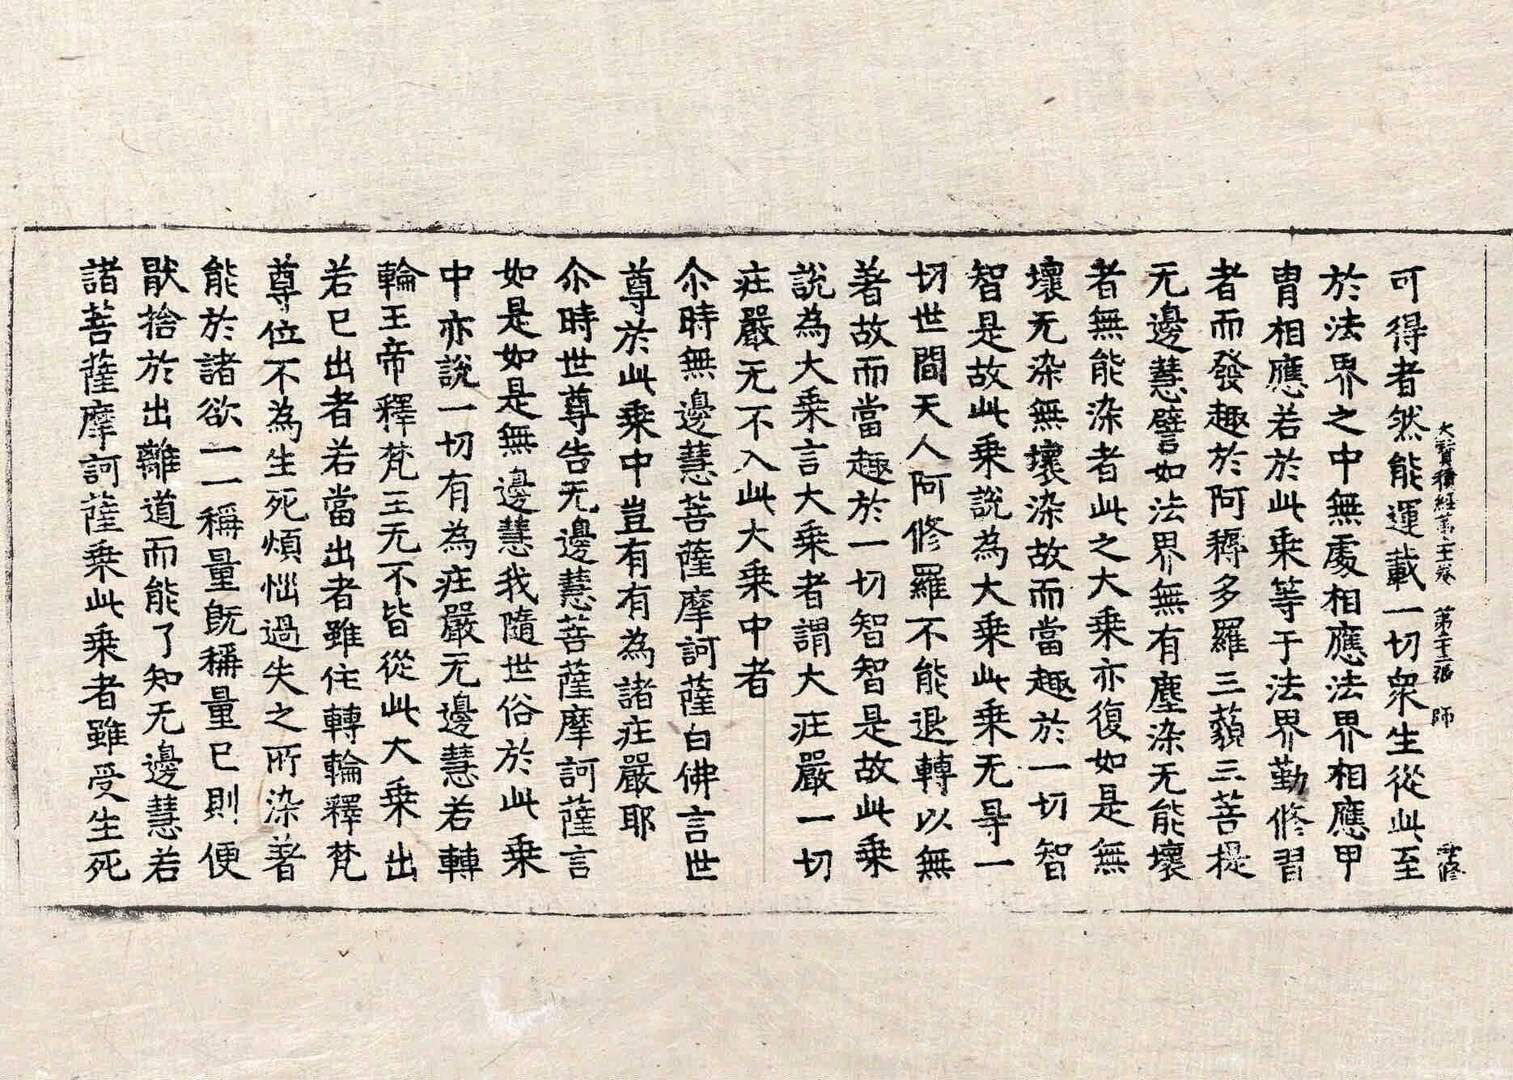 大寶積經第 卷 第 張 師 修
可得者然能運載一切衆生從此至
於法界之中無處相應法界相應甲
冑相應若於此乘等于法界勤修習
者而發趣於阿耨多羅三藐三菩提
无邊慧譬如法界無有塵染无能壞
者無能染者此之大乘亦復如是無
壞无染無壞染故而當趣於一切智
智是故此乘說為大乘此乘无㝵一
切世間天人阿修羅不能退轉以無
著故而當趣於一切智智是故此乘
說為大乘言大乘者謂大庄嚴一切
庄嚴无不入此大乘中者
尒時無邊慧菩薩摩訶薩白佛言世
尊於此乘中豈有有為諸庄嚴耶
尒時世尊告无邊慧菩薩摩訶薩言
如是如是無邊慧我隨世俗於此乘
中亦說一切有為庄嚴无邊慧若轉
輪王帝釋梵王无不皆從此大乘出
若已出者若當出者雖住轉輪釋梵
尊位不為生死煩惱過失之所染著
能於諸欲一一稱量旣稱量已則便
猒捨於出離道而能了知无邊慧若
諸菩薩摩訶薩乘此乘者雖受生死